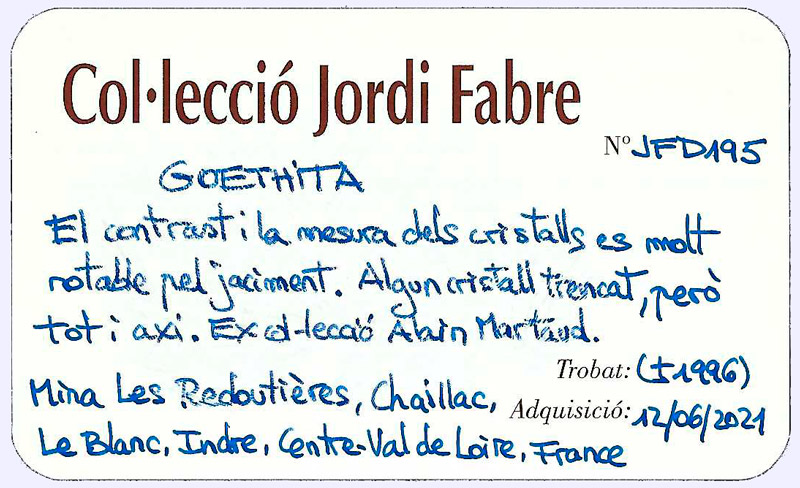 Col·lecció Jordi Fabre
Nº JFD195
GOETHITA
El contrast i la mesura dels cristalls es molt
notable pel jaciment. Algun cristall trencat, però
tot i axi. Ex col·lecció Alain Martaud.
Trobat: (±1996)
Mina Les Redoutières, Chaillac,
Adquisició: 12/06/2021
Le Blanc, Indre, Centre-Val de Loire, France